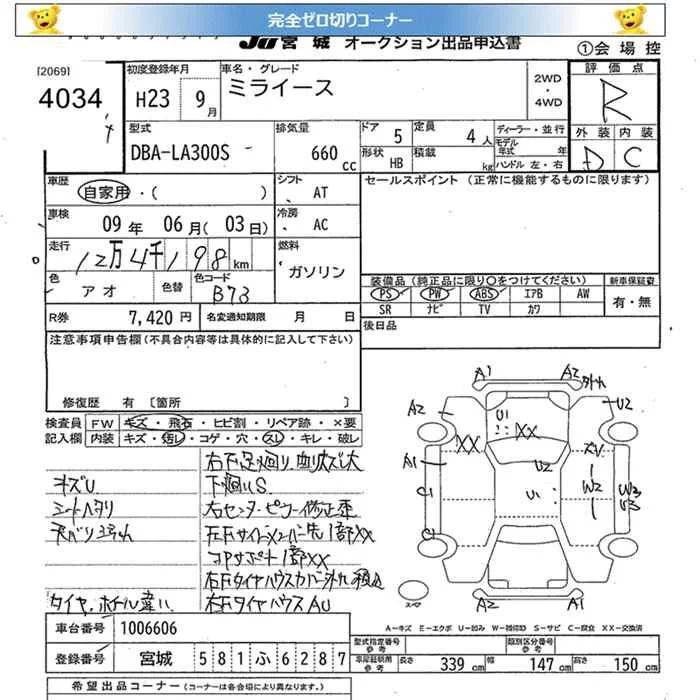 完全ゼロ切りコーナー
JU 宮城 オークション出品申込書
①会場控
[2069]
4034
初度登録年月
H23 9月
車名・グレード
ミライース
2WD
・
4WD
評価点
R
外装 内装
D C
型式
DBA-LA300S
排気量
660 cc
ドア 5
定員 4人
形状 HB
積載 kg
ディーラー・並行
モデル年式 年
ハンドル 左・右
車歴
自家用・( )
シフト
AT
セールスポイント (正常に機能するものに限ります)
車検
09年 06月(03日)
冷房
AC
走行
12万4千198km
燃料
ガソリン
色
アオ
色替
色コード
B73
装備品(純正品に限り○をつけてください)
新車保証書
PS PW ABS エアB AW
有・無
SR ナビ TV カワ
R券 7,420円
名変通知期限 月 日
後日品
注意事項申告欄(不具合内容等は具体的に記入して下さい)
修復歴 有 [箇所 ]
検査員記入欄
FW キズ・飛石・ヒビ割・リペア跡・×要
内装 キズ・汚レ・コゲ・穴・スレ・キレ・破レ
右下足廻り、曲り大
キズU
下廻りS
シートヘタリ
右センターピラー修正要
天バリヨゴレ
コアサポート1部XX
タイヤ、ホイール違い
右Fタイヤハウス AU
A1 A2
A2 U2
U1 XX
XX
A1 U2
W2
C1 U1
C
A2 A1
スペア
A-キズ E-エクボ U-凹み W-補修跡 S-サビ C-腐食 XX-交換済
車台番号 1006606
登録番号 宮城 581ふ6287
型式指定番号 参考
類別区分番号 参考
車庫証明用 参考
長さ 339cm 幅 147cm 高さ 150cm
希望出品コーナー(コーナーは各会場により異なります。)